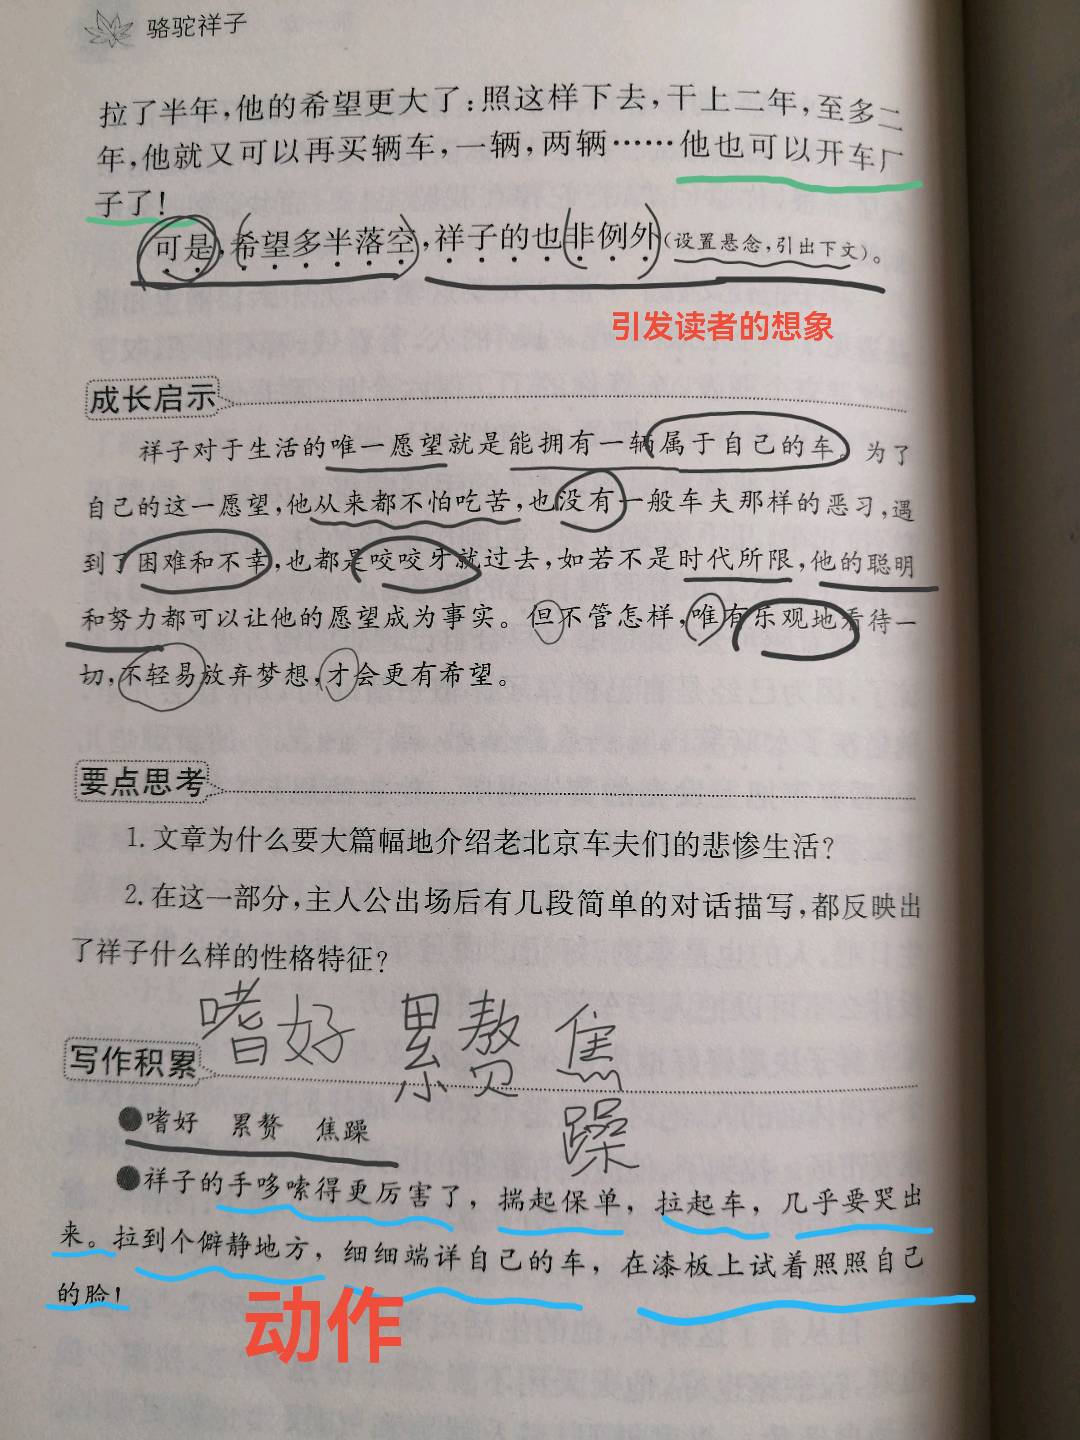 骆驼祥子
拉了半年，他的希望更大了：照这样下去，干上二年，至多二
年，他就又可以再买辆车，一辆，两辆……他也可以开车厂
子了！
可是，希望多半落空，祥子的也非例外（设置悬念，引出下文）。
引发读者的想象
成长启示
祥子对于生活的唯一愿望就是能拥有一辆属于自己的车。为了
自己的这一愿望，他从来都不怕吃苦，也没有一般车夫那样的恶习，遇
到了困难和不幸，也都是咬咬牙就过去，如若不是时代所限，他的聪明
和努力都可以让他的愿望成为事实。但不管怎样，唯有乐观地看待一
切，不轻易放弃梦想，才会更有希望。
要点思考
1. 文章为什么要大篇幅地介绍老北京车夫们的悲惨生活？
2. 在这一部分，主人公出场后有几段简单的对话描写，都反映出
了祥子什么样的性格特征？
嗜好 累赘 焦
躁
写作积累
●嗜好 累赘 焦躁
●祥子的手哆嗦得更厉害了，揣起保单，拉起车，几乎要哭出
来。拉到个僻静地方，细细端详自己的车，在漆板上试着照照自己
的脸！
动作